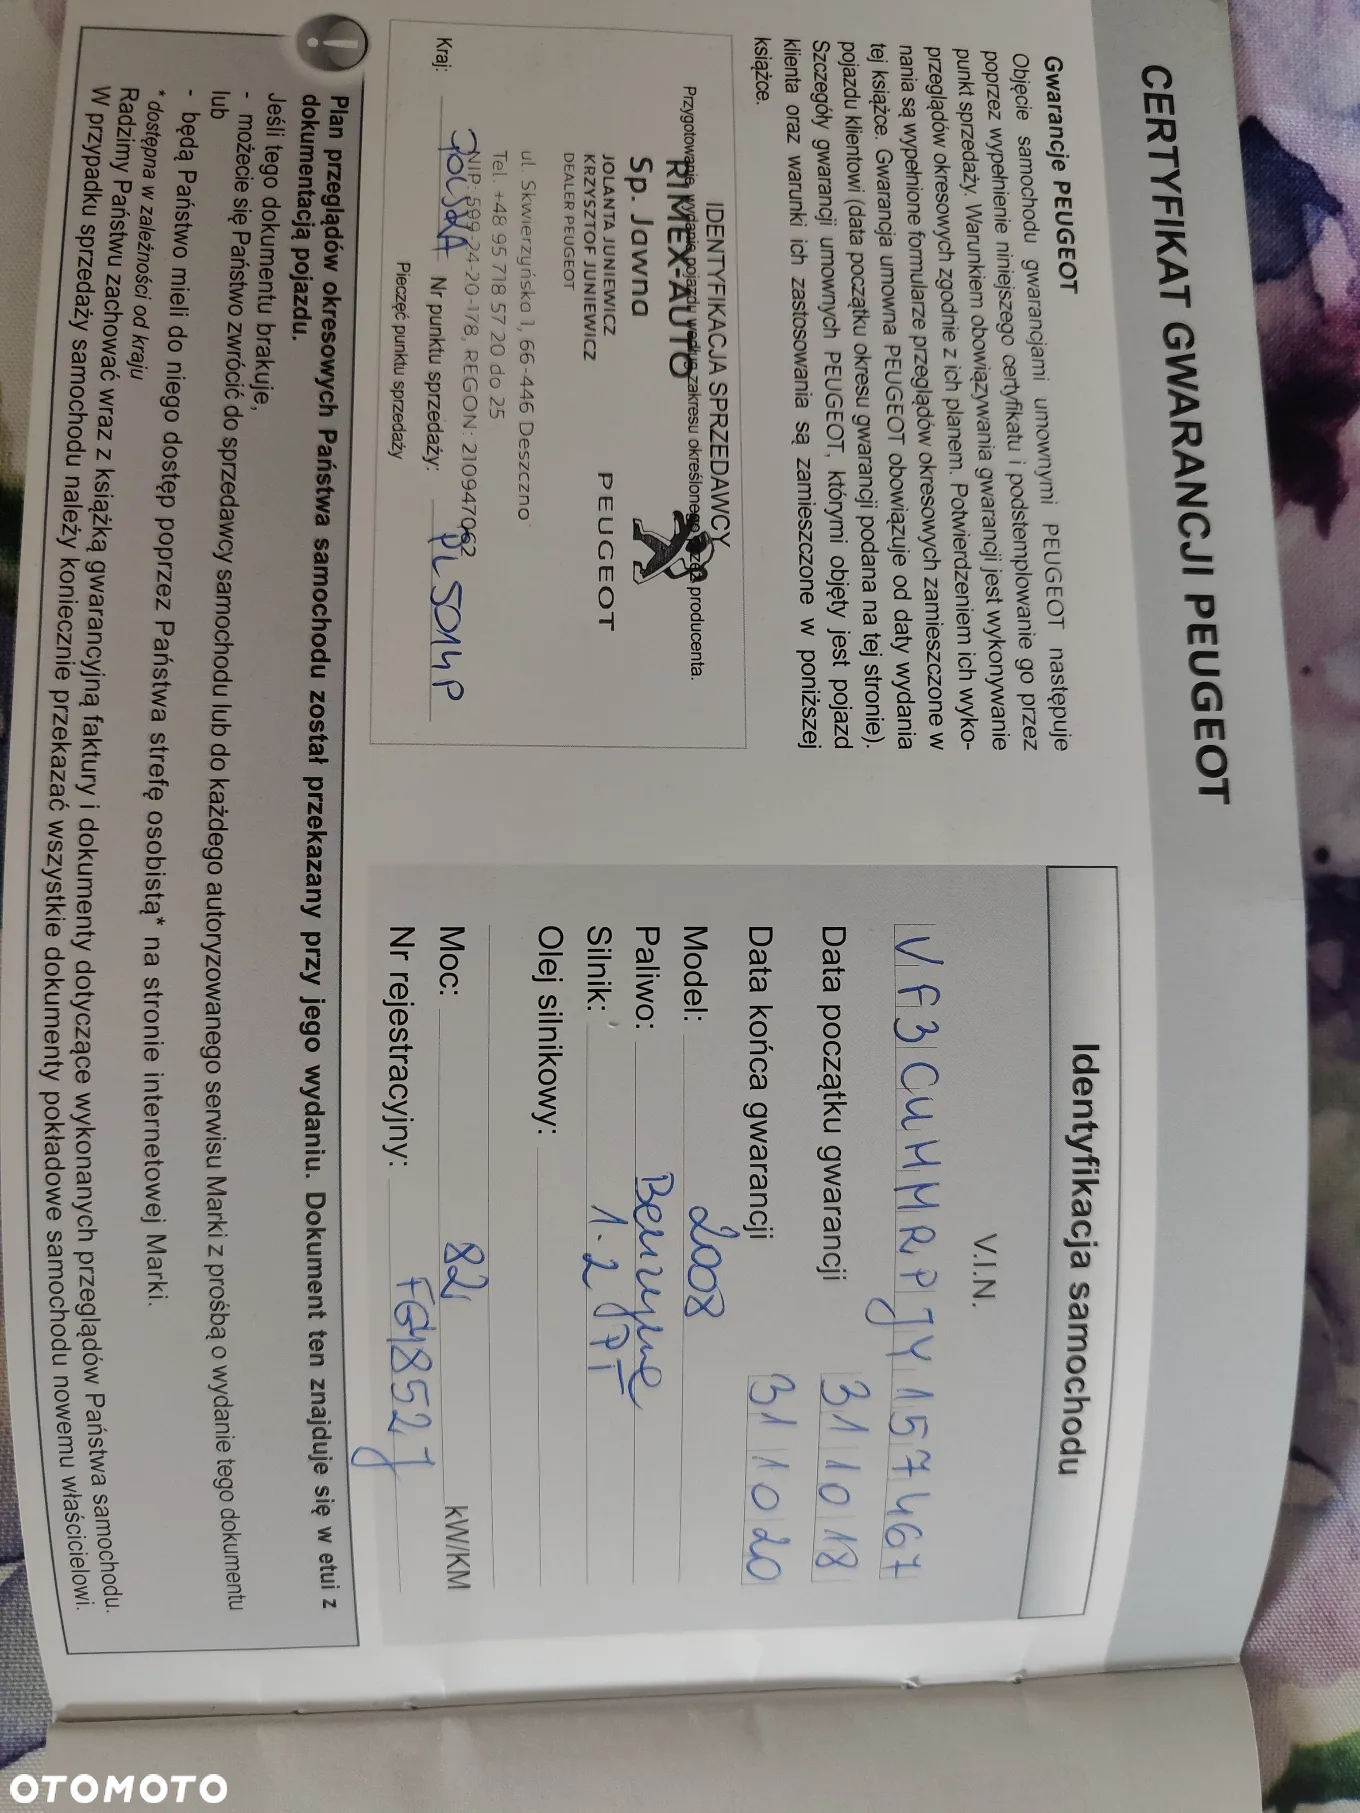 CERTYFIKAT GWARANCJI PEUGEOT
Gwarancje PEUGEOT
Objęcie samochodu gwarancjami umownymi PEUGEOT następuje
poprzez wypełnienie niniejszego certyfikatu i podstemplowanie go przez
punkt sprzedaży. Warunkiem obowiązywania gwarancji jest wykonywanie
przeglądów okresowych zgodnie z ich planem. Potwierdzeniem ich wyko-
nania są wypełnione formularze przeglądów okresowych zamieszczone w
tej książce. Gwarancja umowna PEUGEOT obowiązuje od daty wydania
pojazdu klientowi (data początku okresu gwarancji podana na tej stronie).
Szczegóły gwarancji umownych PEUGEOT, którymi objęty jest pojazd
klienta oraz warunki ich zastosowania są zamieszczone w poniższej
książce.
IDENTYFIKACJA SPRZEDAWCY
Przygotowanie i wydanie pojazdu według zakresu określonego przez producenta.
RIMEX-AUTO
Sp. Jawna
JOLANTA JUNIEWICZ
KRZYSZTOF JUNIEWICZ
DEALER PEUGEOT
PEUGEOT
ul. Skwierzyńska 1, 66-446 Deszczno
Tel. +48 95 718 57 20 do 25
NIP: 599-24-20-178, REGON: 210947062
Kraj: POLSKA Nr punktu sprzedaży: PL 5014P
Pieczęć punktu sprzedaży
Identyfikacja samochodu
V.I.N.
VF3CUHMRPJY157467
Data początku gwarancji 31 10 18
Data końca gwarancji 31 10 20
Model: 2008
Paliwo: Benzyna
Silnik: 1.2 PT
Olej silnikowy:
Moc: 82 kW/KM
Nr rejestracyjny: FG1852J
Plan przeglądów okresowych Państwa samochodu został przekazany przy jego wydaniu. Dokument ten znajduje się w etui z
dokumentacją pojazdu.
Jeśli tego dokumentu brakuje,
- możecie się Państwo zwrócić do sprzedawcy samochodu lub do każdego autoryzowanego serwisu Marki z prośbą o wydanie tego dokumentu
lub
- będą Państwo mieli do niego dostęp poprzez Państwa strefę osobistą* na stronie internetowej Marki.
* dostępna w zależności od kraju
Radzimy Państwu zachować wraz z książką gwarancyjną faktury i dokumenty dotyczące wykonanych przeglądów Państwa samochodu.
W przypadku sprzedaży samochodu należy koniecznie przekazać wszystkie dokumenty pokładowe samochodu nowemu właścicielowi.
OTOMOTO